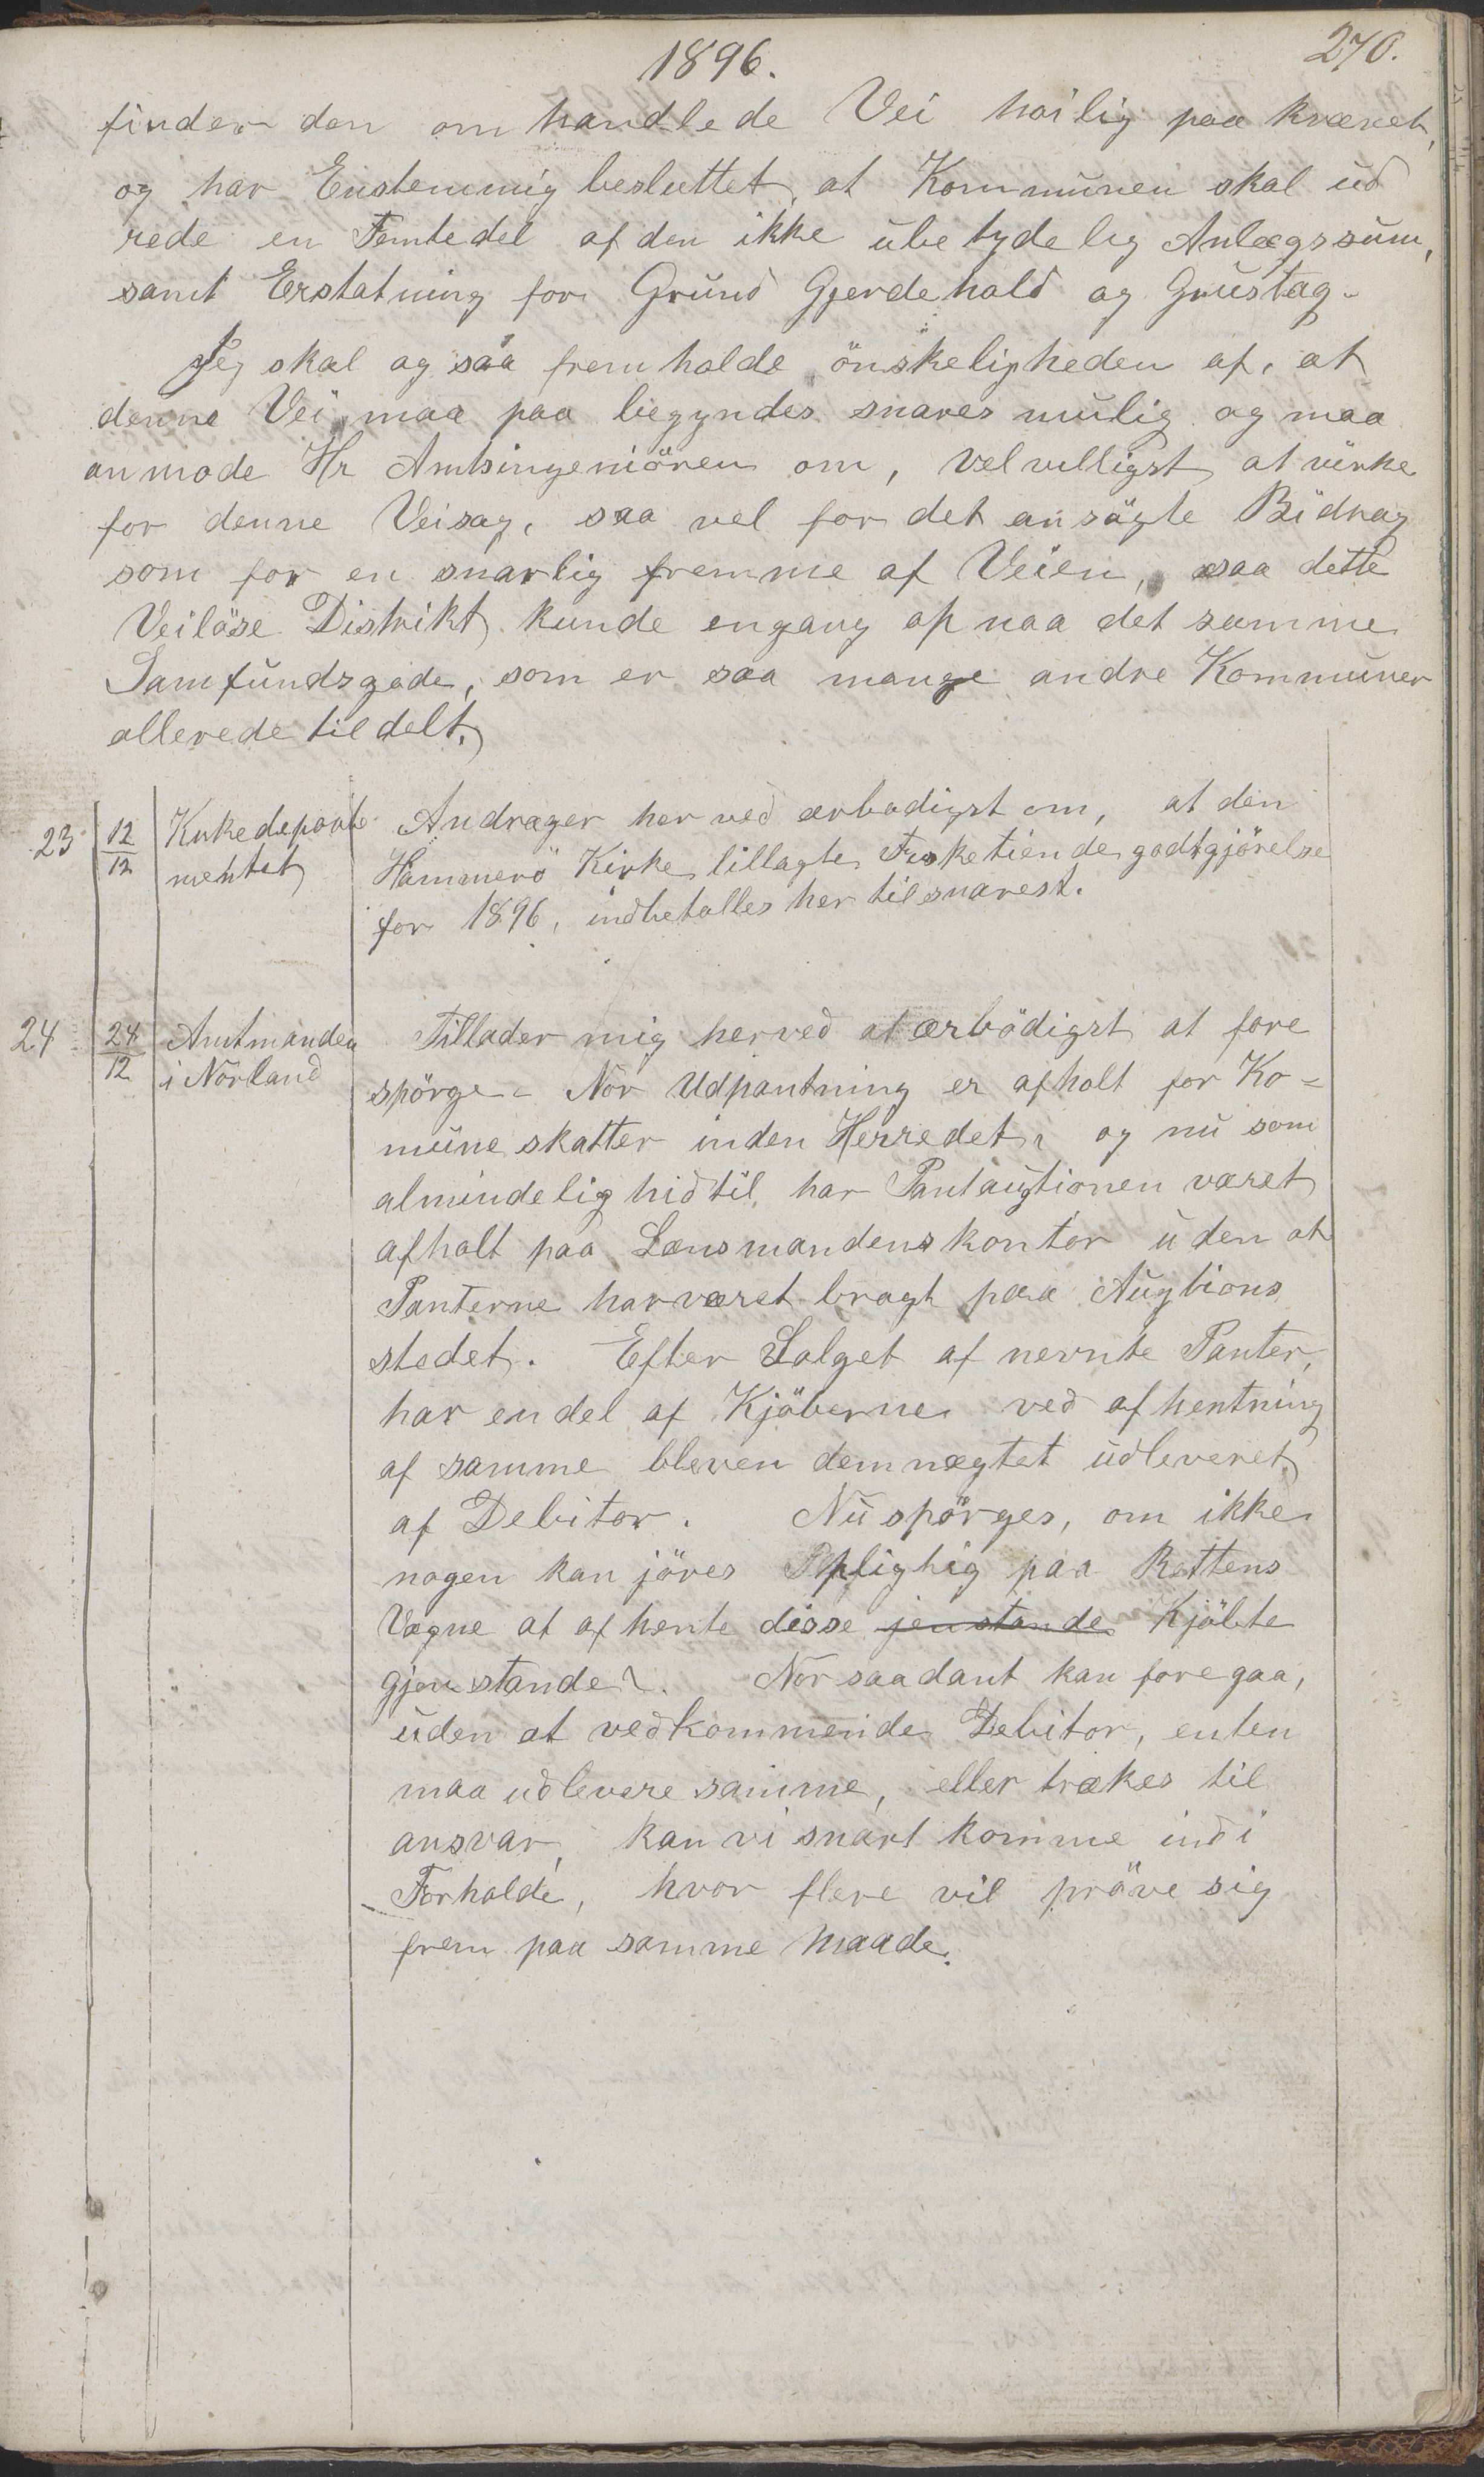 1896.
270.
finder den omhandlede Vei höilig paa krævet,
og har Enstemmig besluttet, at Kommunen skal ud
rede en Femtedel af den ikke ubetydelig Anlægssum,
samt Erstatning for Grund Gjerdehold og Grustag.
Jeg skal og saa fremholde önskeligheden af, at
denne Vei maa paa begyndes snares mulig og maa
anmode Hr Amtsingeniören om, velvilligst at virke
for denne Veisag, saa vel for det ansögte Bidrag
som for en snarlig fremme af Veien, saa dette
Veilöse Distrikt kunde engang opnaa det samme
Samfundsgode, som er saa mange andre Kommuner
allerede tildelt.
23 12/12 Kirkedeparte
mentet
Andrager herved ærbødigst om, at den
Hammerö Kirke tillagte Fisketiende godtgjörelse
for 1896, indbetalles her til snarest.
24 24/12 Amtmanden
i Norland
Tillader mig herved at ærbödigst at fore
spörge - Nor Udpantning er afholt for Ko=
mune skatter inden Herredet, og nu som
almindelig hidtil, har Pantaugtionen været
afholt paa Lænsmandens kontor uden at
Panterne har været bragt paa Augtions
stedet. Efter Salget af nevnte Panter,
har en del af Kjöberne ved afhentning
af samme bleven dem nægtet udleveret
af Debitor. Nu spörges, om ikke
nogen kan jöres Pligtig paa Rettens
Vægne at afhente disse jenstande Kjöbte
gjenstande?. Nor saadant kan foregaa,
uden at vedkommende Debitor, enten
maa udlevere samme, eller trækes til
ansvar, kan vi snart komme ind i
Forholde, hvor flere vil pröve sig
frem paa samme Maade.